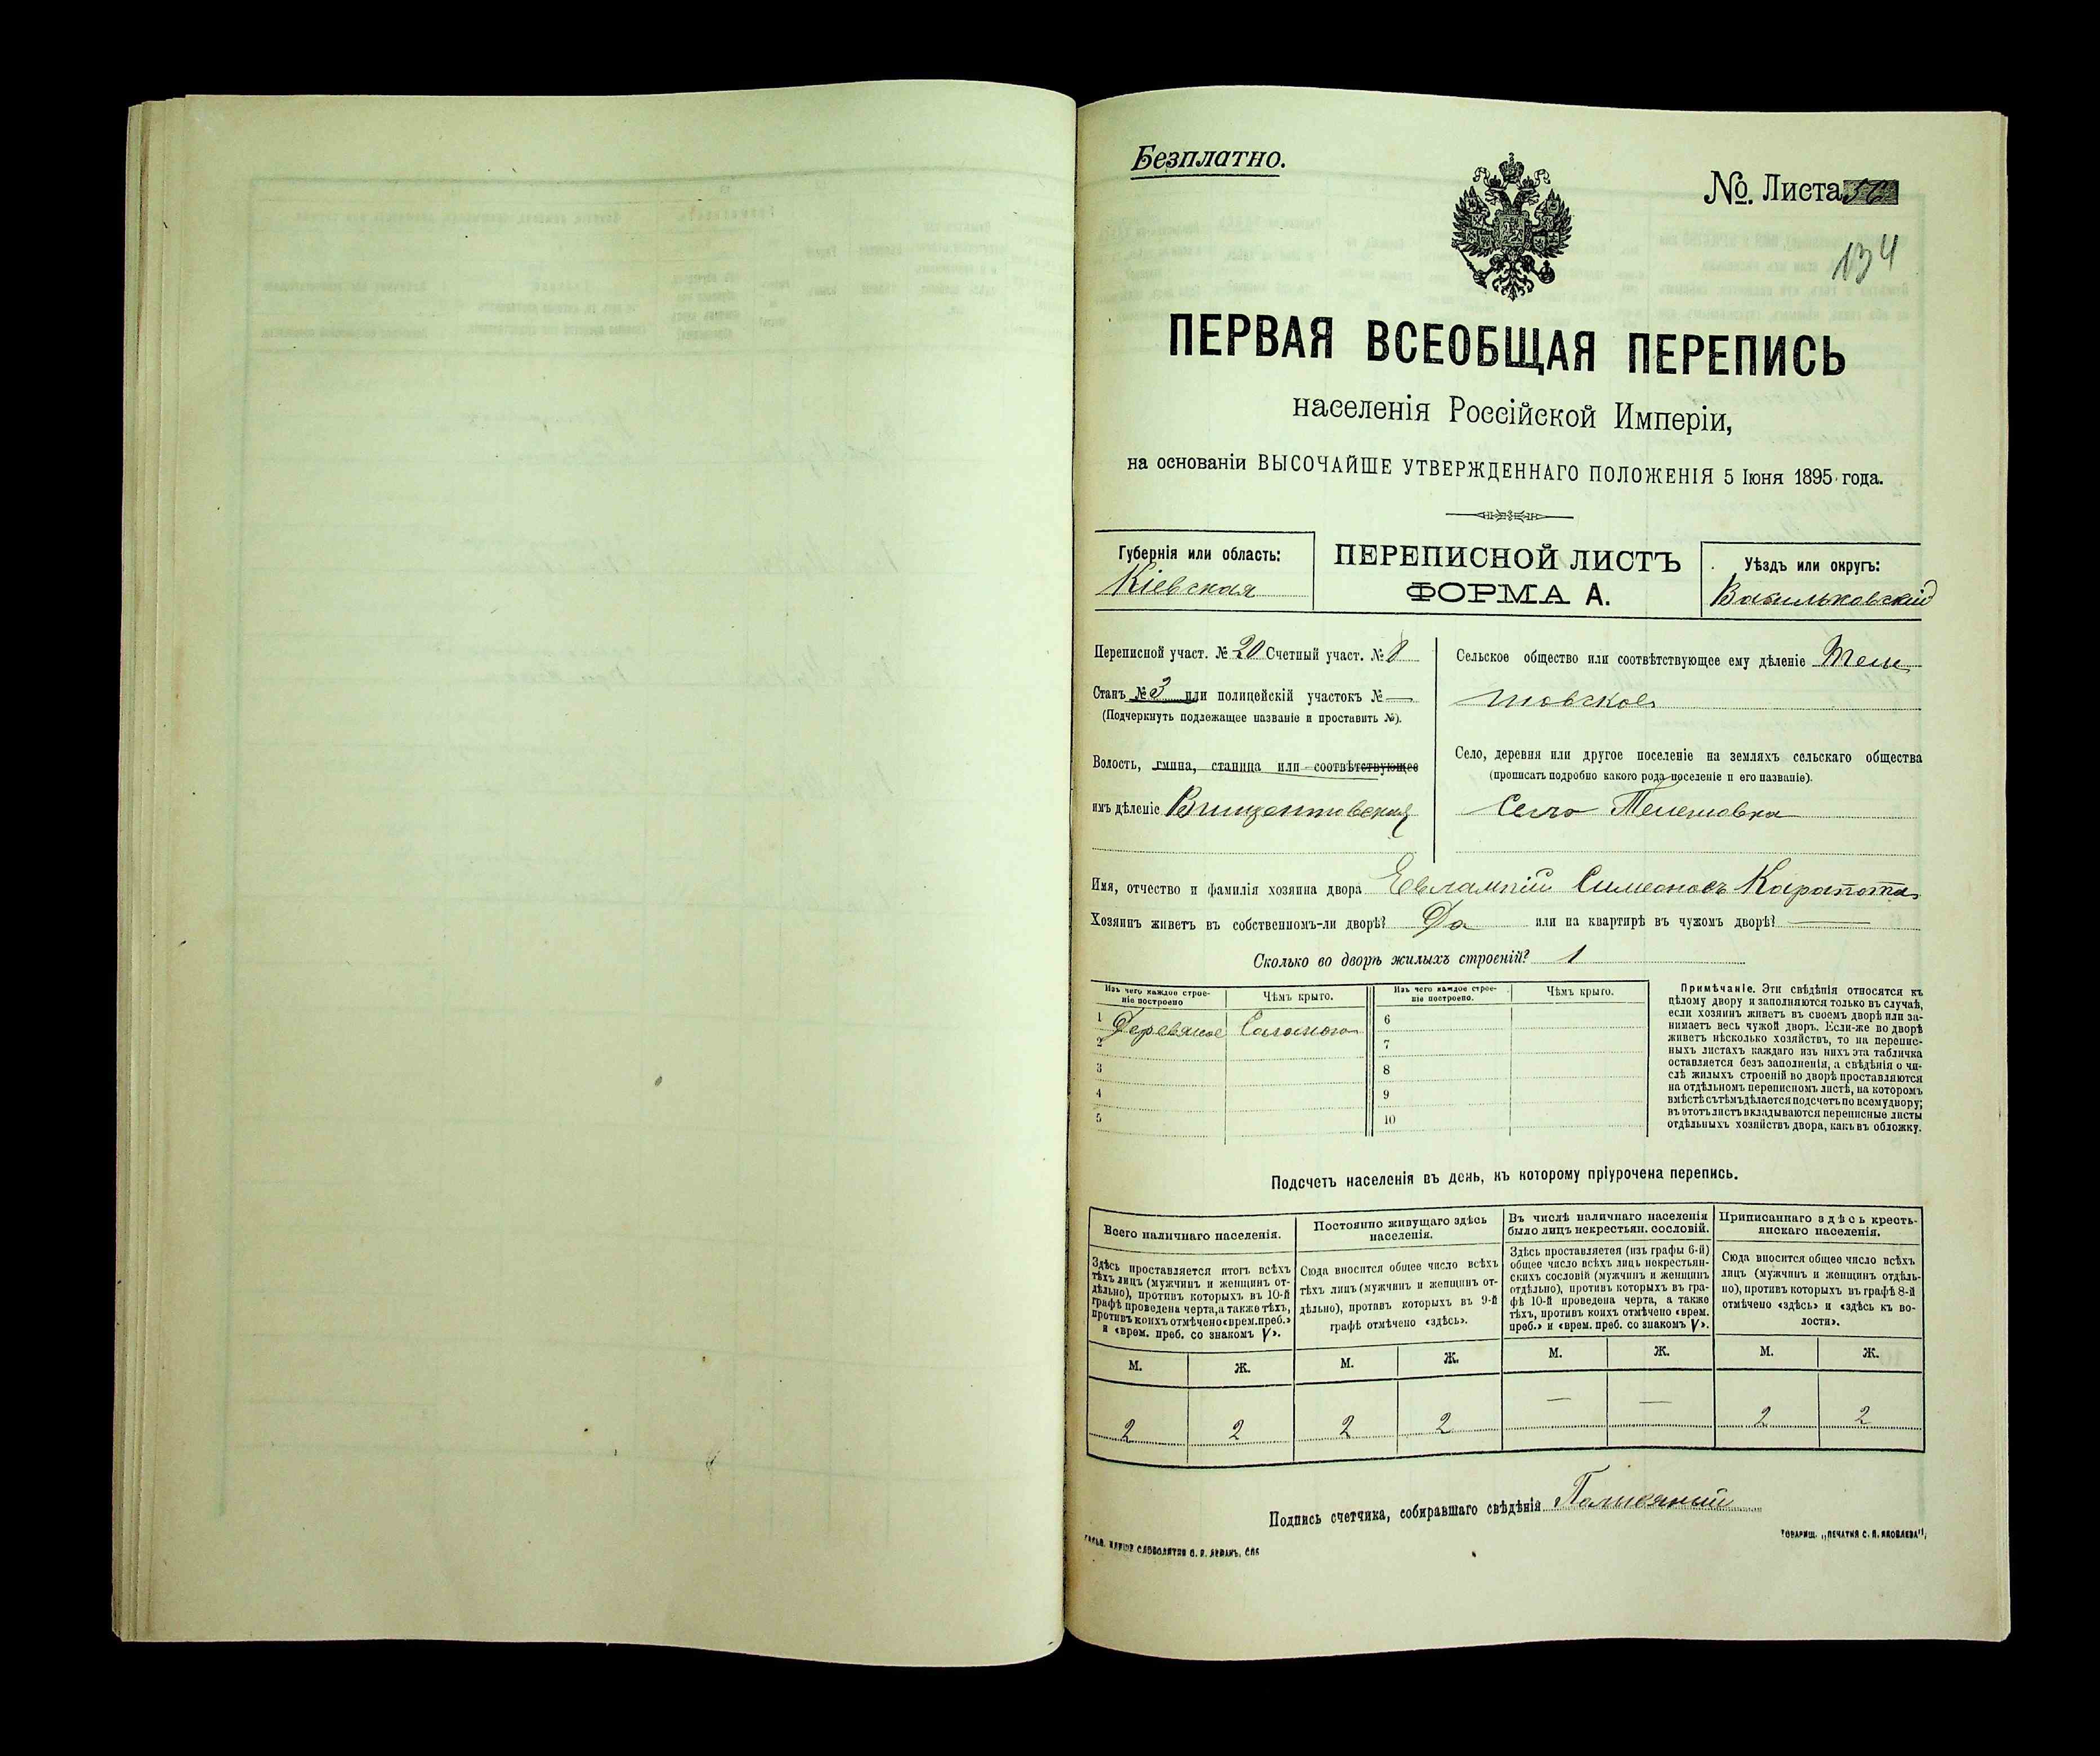 Безплатно.
№. Листа 56
134
ПЕРВАЯ ВСЕОБЩАЯ ПЕРЕПИСЬ
населенія Россійской Имперіи,
на основаніи ВЫСОЧАЙШЕ УТВЕРЖДЕННАГО ПОЛОЖЕНІЯ 5 Іюня 1895 года.
Губернія или область:
Кіевская
ПЕРЕПИСНОЙ ЛИСТЪ
ФОРМА А.
Уѣздъ или округъ:
Васильковскій
Переписной участ. № 20 Счетный участ. № 8
Станъ № 3 или полицейскій участокъ № —
(Подчеркнуть подлежащее названіе и проставить №).
Волость, гмина, станица или соотвѣтствующее
имъ дѣленіе Винцентовская
Сельское общество или соотвѣтствующее ему дѣленіе Теле
шовское
Село, деревня или другое поселеніе на земляхъ сельскаго общества
(прописать подробно какого рода поселеніе и его названіе).
Село Телешовка
Имя, отчество и фамилія хозяина двора Евлампій Симеоновъ Карапота
Хозяинъ живетъ въ собственномъ-ли дворѣ? Да или на квартирѣ въ чужомъ дворѣ? —
Сколько во дворѣ жилыхъ строеній? 1
Изъ чего каждое строе-
ніе построено
Чѣмъ крыто.
Изъ чего каждое строе-
ніе построено.
Чѣмъ крыто.
1 Деревяное Соломою
2
3
4
5
6
7
8
9
10
Примѣчаніе. Эти свѣдѣнія относятся къ
цѣлому двору и заполняются только въ случаѣ,
если хозяинъ живетъ въ своемъ дворѣ или за-
нимаетъ весь чужой дворъ. Если-же во дворѣ
живетъ нѣсколько хозяйствъ, то на перепис-
ныхъ листахъ каждаго изъ нихъ эта табличка
оставляется безъ заполненія, а свѣдѣнія о чи-
слѣ жилыхъ строеній во дворѣ проставляются
на отдѣльномъ переписномъ листѣ, на которомъ
вмѣстѣ съ тѣмъ дѣлается подсчетъ по всему двору;
въ этотъ листъ вкладываются переписные листы
отдѣльныхъ хозяйствъ двора, какъ въ обложку.
Подсчетъ населенія въ день, къ которому пріурочена перепись.
Всего наличнаго населенія.
Здѣсь проставляется итогъ всѣхъ
тѣхъ лицъ (мужчинъ и женщинъ от-
дѣльно), противъ которыхъ въ 10-й
графѣ проведена черта, а также тѣхъ,
противъ коихъ отмѣчено «врем. преб.»
и «врем. преб. со знакомъ V».
Постоянно живущаго здѣсь
населенія.
Сюда вносится общее число всѣхъ
тѣхъ лицъ (мужчинъ и женщинъ от-
дѣльно), противъ которыхъ въ 9-й
графѣ отмѣчено «здѣсь».
Въ числѣ наличнаго населенія
было лицъ некрестьян. сословій.
Здѣсь проставляется (изъ графы 6-й)
общее число всѣхъ лицъ некрестьян-
скихъ сословій (мужчинъ и женщинъ
отдѣльно), противъ которыхъ въ гра-
фѣ 10-й проведена черта, а также
тѣхъ, противъ коихъ отмѣчено «врем.
преб.» и «врем. преб. со знакомъ V».
Приписаннаго здѣсь кресть-
янскаго населенія.
Сюда вносится общее число всѣхъ
лицъ (мужчинъ и женщинъ отдѣль-
но), противъ которыхъ въ графѣ 8-й
отмѣчено «здѣсь» и «здѣсь къ во-
лости».
М. Ж. М. Ж. М. Ж. М. Ж.
2 2 2 2 — — 2 2
Подпись счетчика, собиравшаго свѣдѣнія
ТОВАРИЩ. „ПЕЧАТНЯ С. П. ЯКОВЛЕВА",